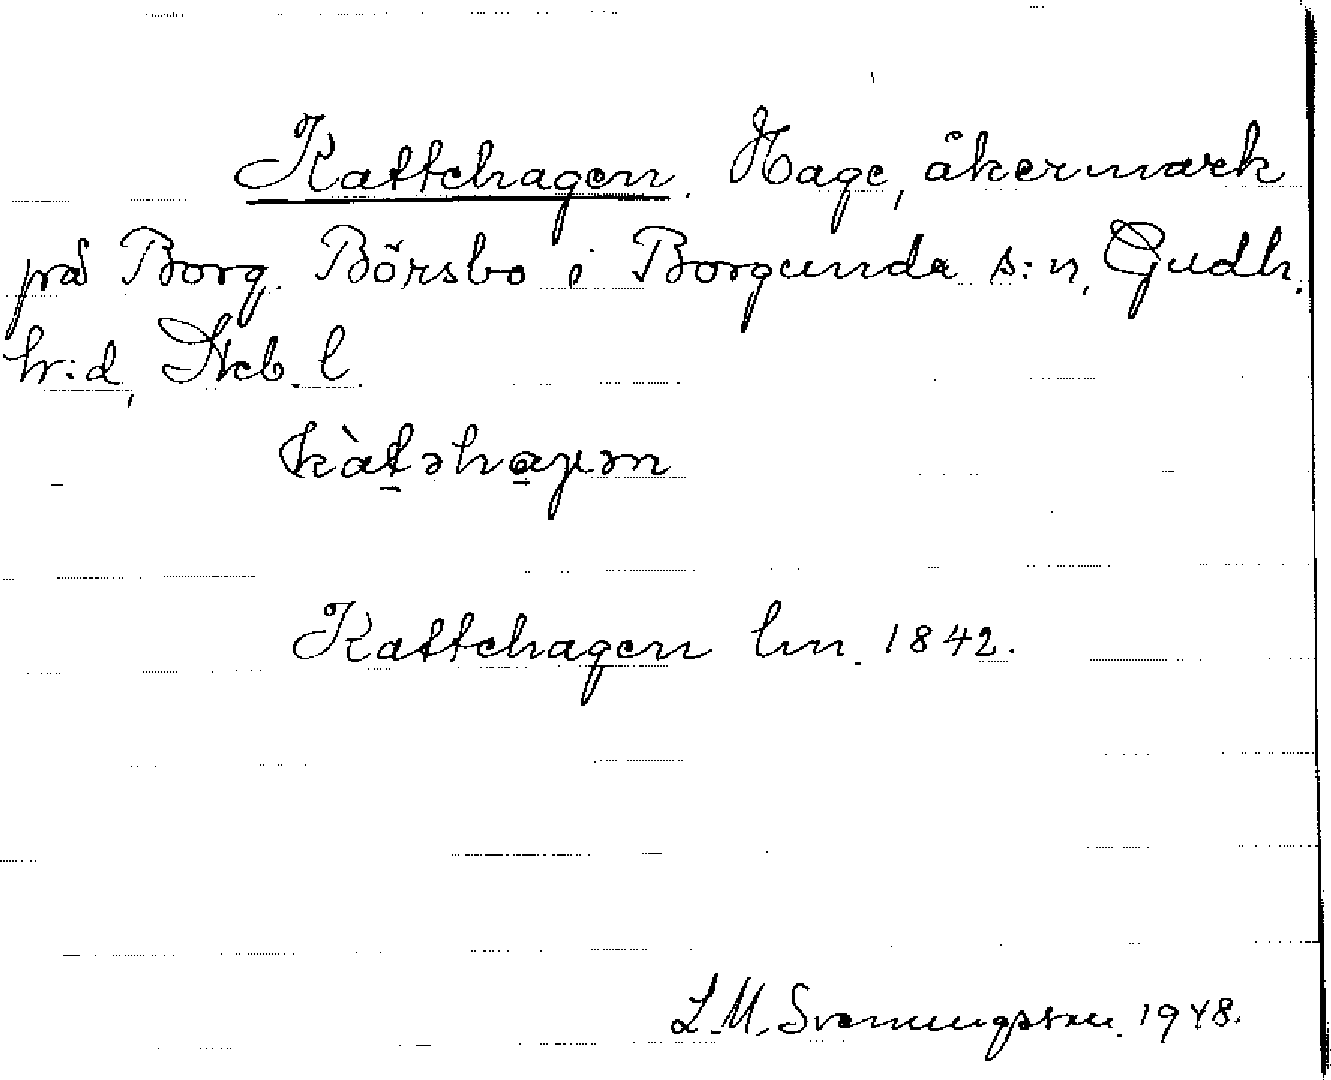 Kattehagen. Hage, åkermark
på Borg. Börsbo i Borgunda s:n, Gudh.
h:d, Skb. l.
kàt̠əha̠gən
Kattehagen lm. 1842.
L. M. Svenungsson. 1948.